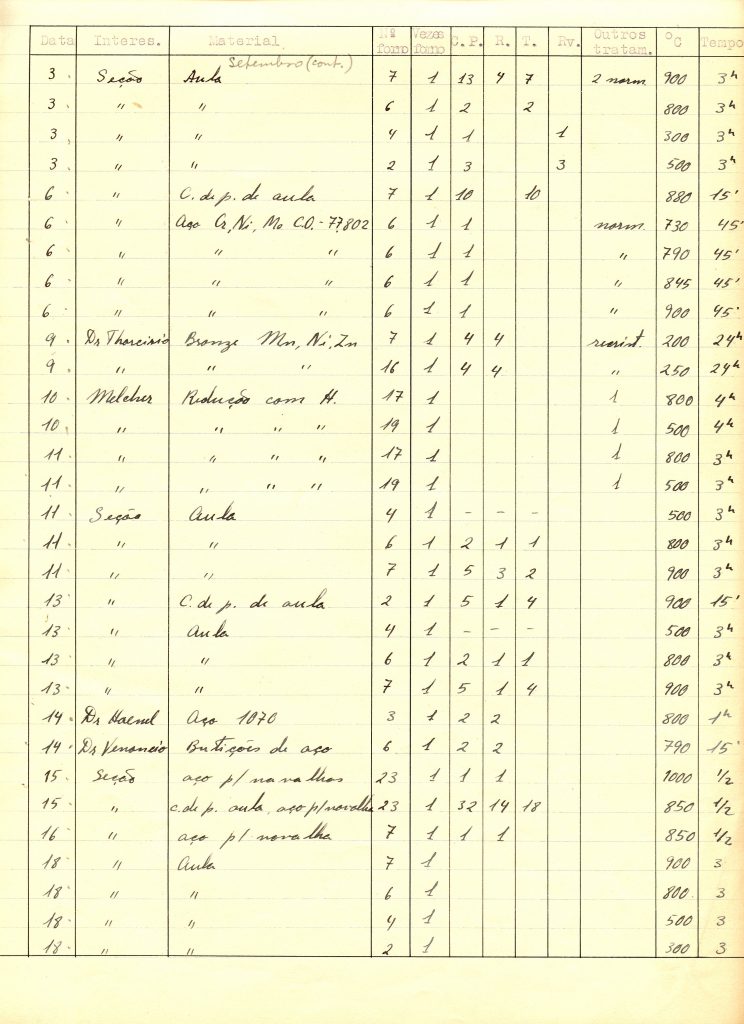 Data Interes. Material Nº forno Vezes forno C. P. R. T. Rv. Outros tratam. °C Tempo
Setembro (cont.)
3 Seção Aula 7 1 13 4 7 2 norm. 900 3h
3 " " 6 1 2 2 800 3h
3 " " 4 1 1 1 300 3h
3 " " 2 1 3 3 500 3h
6 " C. de p. de aula 7 1 10 10 880 15'
6 " Aço Cr, Ni, Mo C.O.-77,802 6 1 1 norm. 730 45'
6 " " " 6 1 1 " 790 45'
6 " " " 6 1 1 " 845 45'
6 " " " 6 1 1 " 900 45'
9 Dr Tharcisio Bronze Mn, Ni, Zn 7 1 4 4 recrist. 200 24h
9 " " " 16 1 4 4 " 250 24h
10 Melcher Redução com H. 17 1 1 800 4h
10 " " " " 19 1 1 500 4h
11 " " " " 17 1 1 800 3h
11 " " " " 19 1 1 500 3h
11 Seção Aula 4 1 - - - 500 3h
11 " " 6 1 2 1 1 800 3h
11 " " 7 1 5 3 2 900 3h
13 " C. de p. de aula 2 1 5 1 4 900 15'
13 " Aula 4 1 - - - 500 3h
13 " " 6 1 2 1 1 800 3h
13 " " 7 1 5 1 4 900 3h
14 Dr Haenel Aço 1070 3 1 2 2 800 1h
14 Dr Venancio de aço 6 1 2 2 790 15'
15 Seção aço p/ navalhas 23 1 1 1 1000 1/2
15 " c. de p. aula, aço p/ navalha 23 1 32 14 18 850 1/2
16 " aço p/ navalha 7 1 1 1 850 1/2
18 " Aula 7 1 900 3
18 " " 6 1 800 3
18 " " 4 1 500 3
18 " " 2 1 300 3